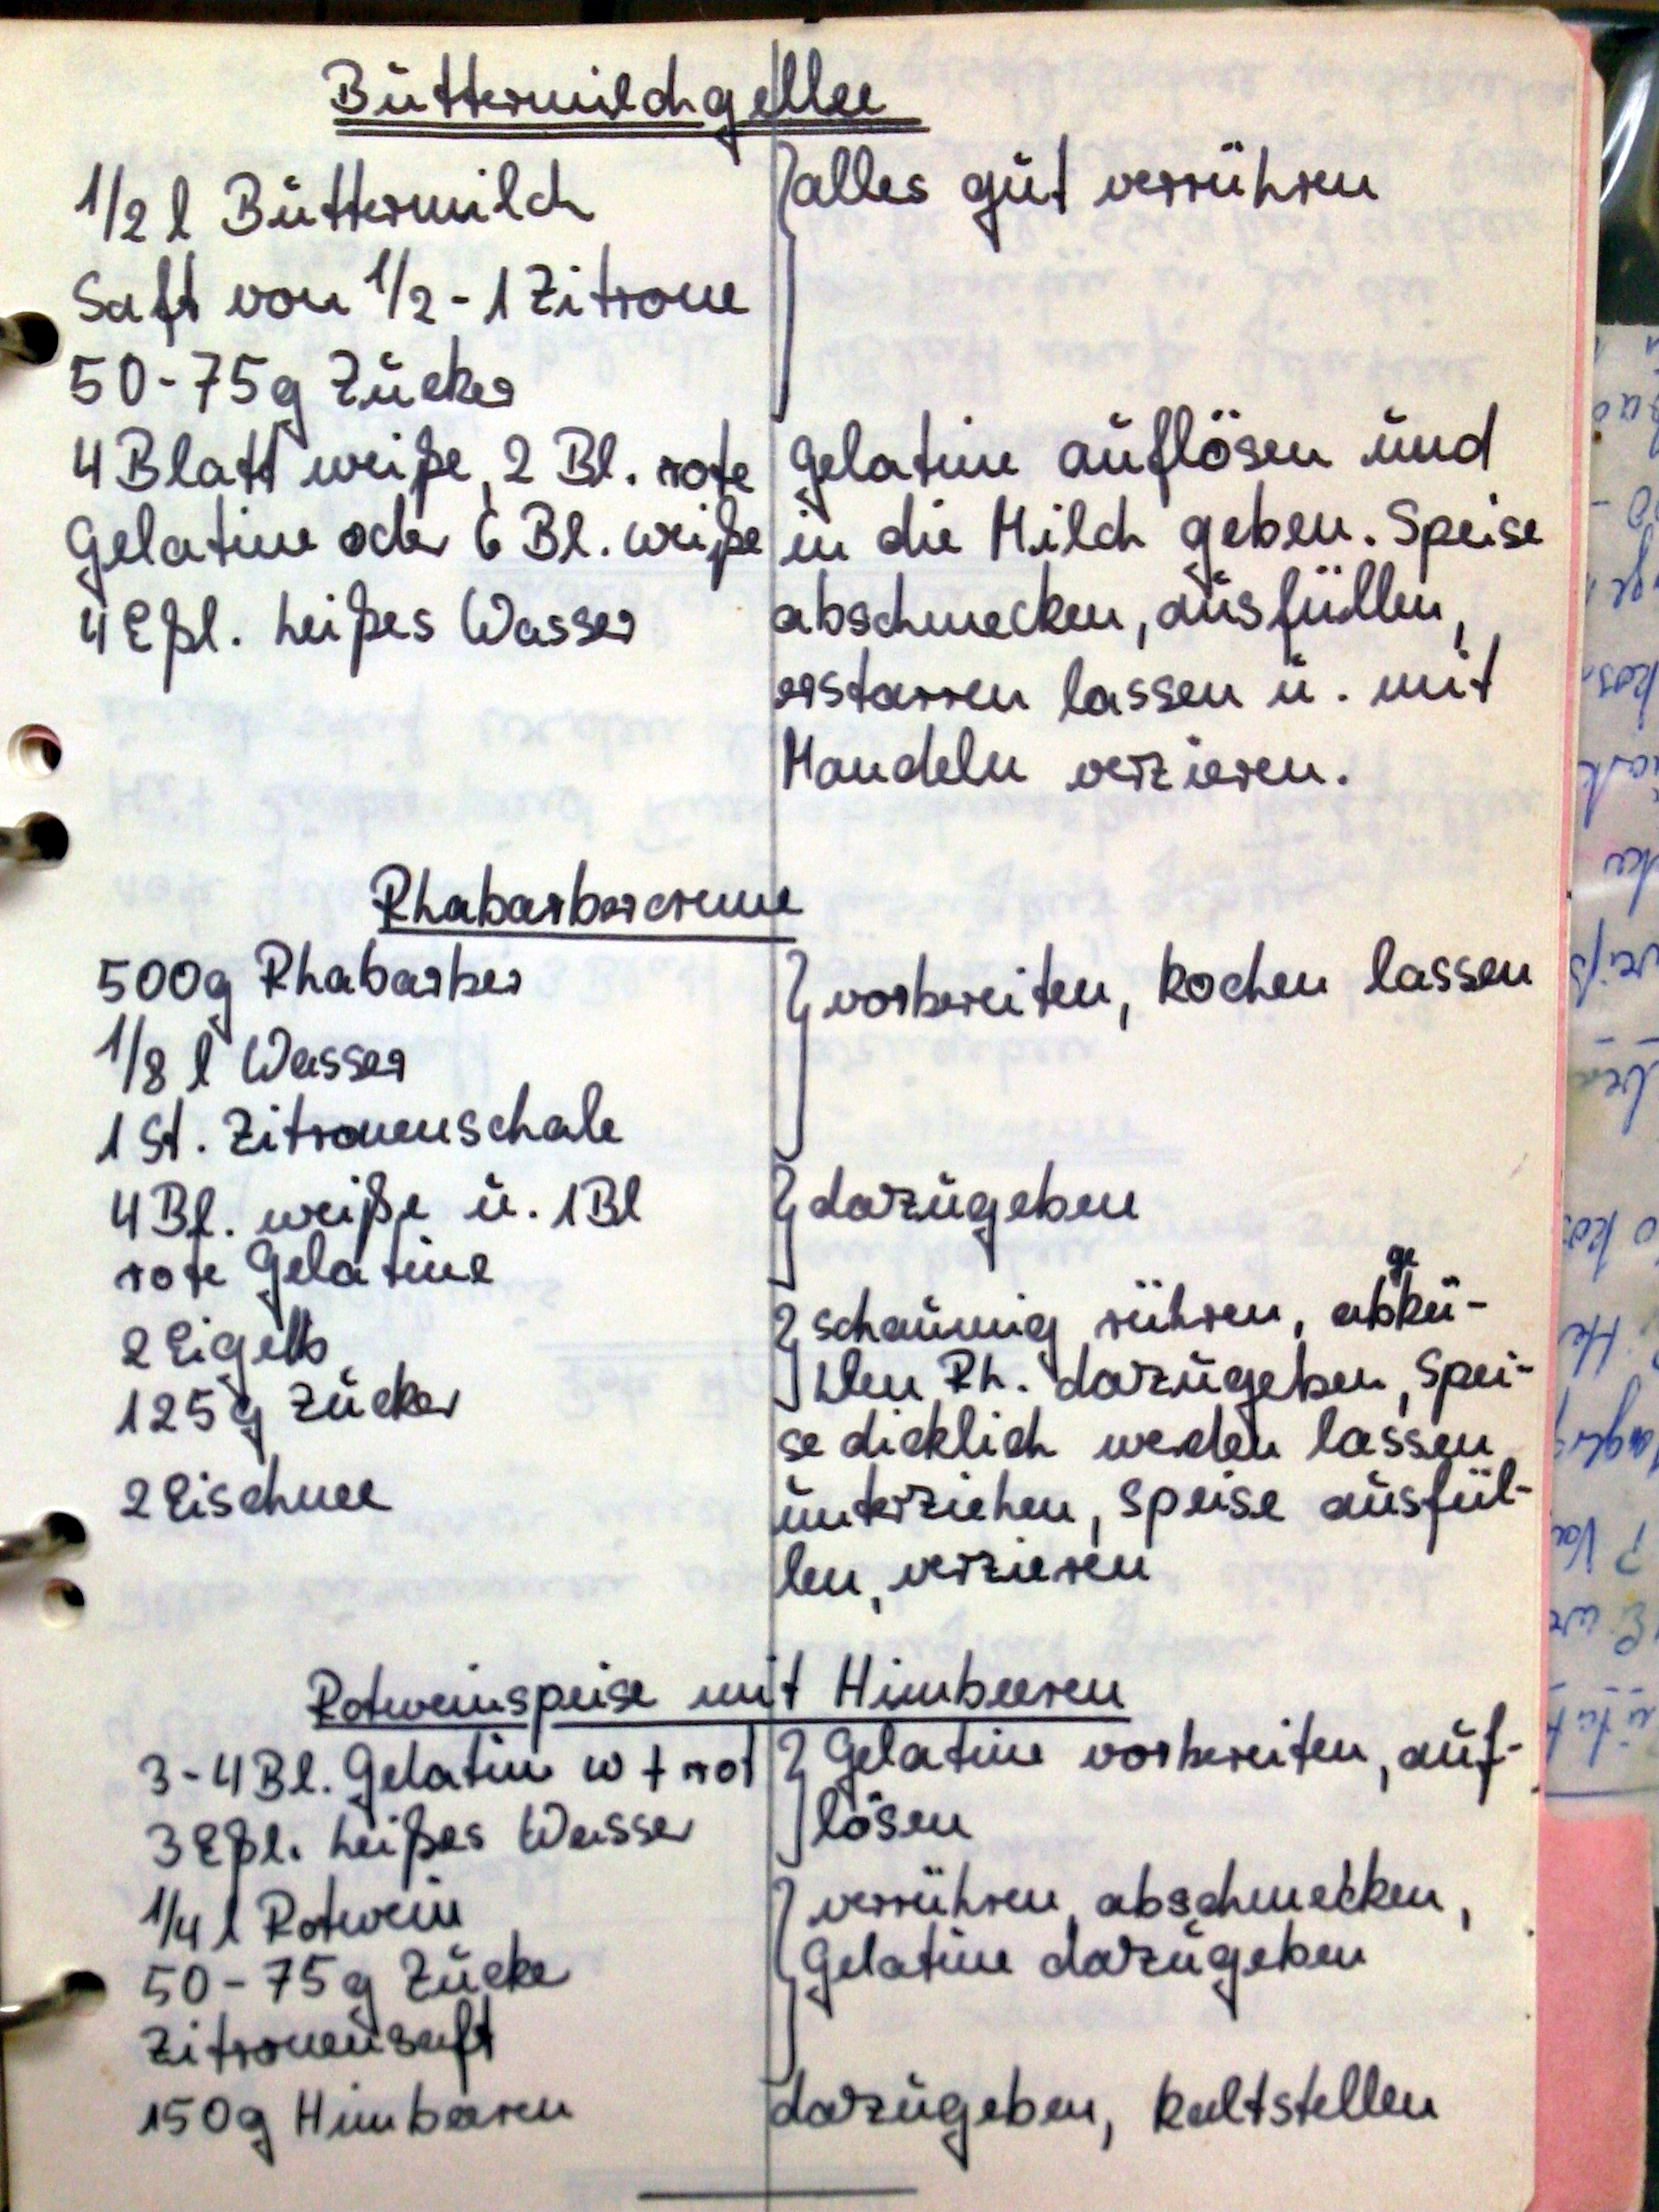 Buttermilchgellee
1/2 l Buttermilch
Saft von 1/2 - 1 Zitrone
50-75g Zucker
alles gut verrühren
4 Blatt weiße, 2 Bl. rote
Gelatine oder 6 Bl. weiße
4 Eßl. heißes Wasser
Gelatine auflösen und
in die Milch geben. Speise
abschmecken, ausfüllen,
erstarren lassen u. mit
Mandeln verzieren.
Rhabarbercreme
500g Rhabarber
1/8 l Wasser
1 St. Zitronenschale
vorbereiten, kochen lassen
4 Bl. weiße u. 1 Bl
rote Gelatine
dazugeben
2 Eigelb
125g Zucker
schaumig rühren, abgekü-
hlen Rh. dazugeben, Spei-
se dicklich werden lassen
2 Eischnee
unterziehen, Speise ausfül-
len, verzieren
Rotweinspeise mit Himbeeren
3-4 Bl. Gelatine w + rot
3 Eßl. heißes Wasser
Gelatine vorbereiten, auf-
lösen
1/4 l Rotwein
50-75g Zucker
Zitronensaft
verrühren, abschmecken,
Gelatine dazugeben
150g Himbeeren
dazugeben, kaltstellen